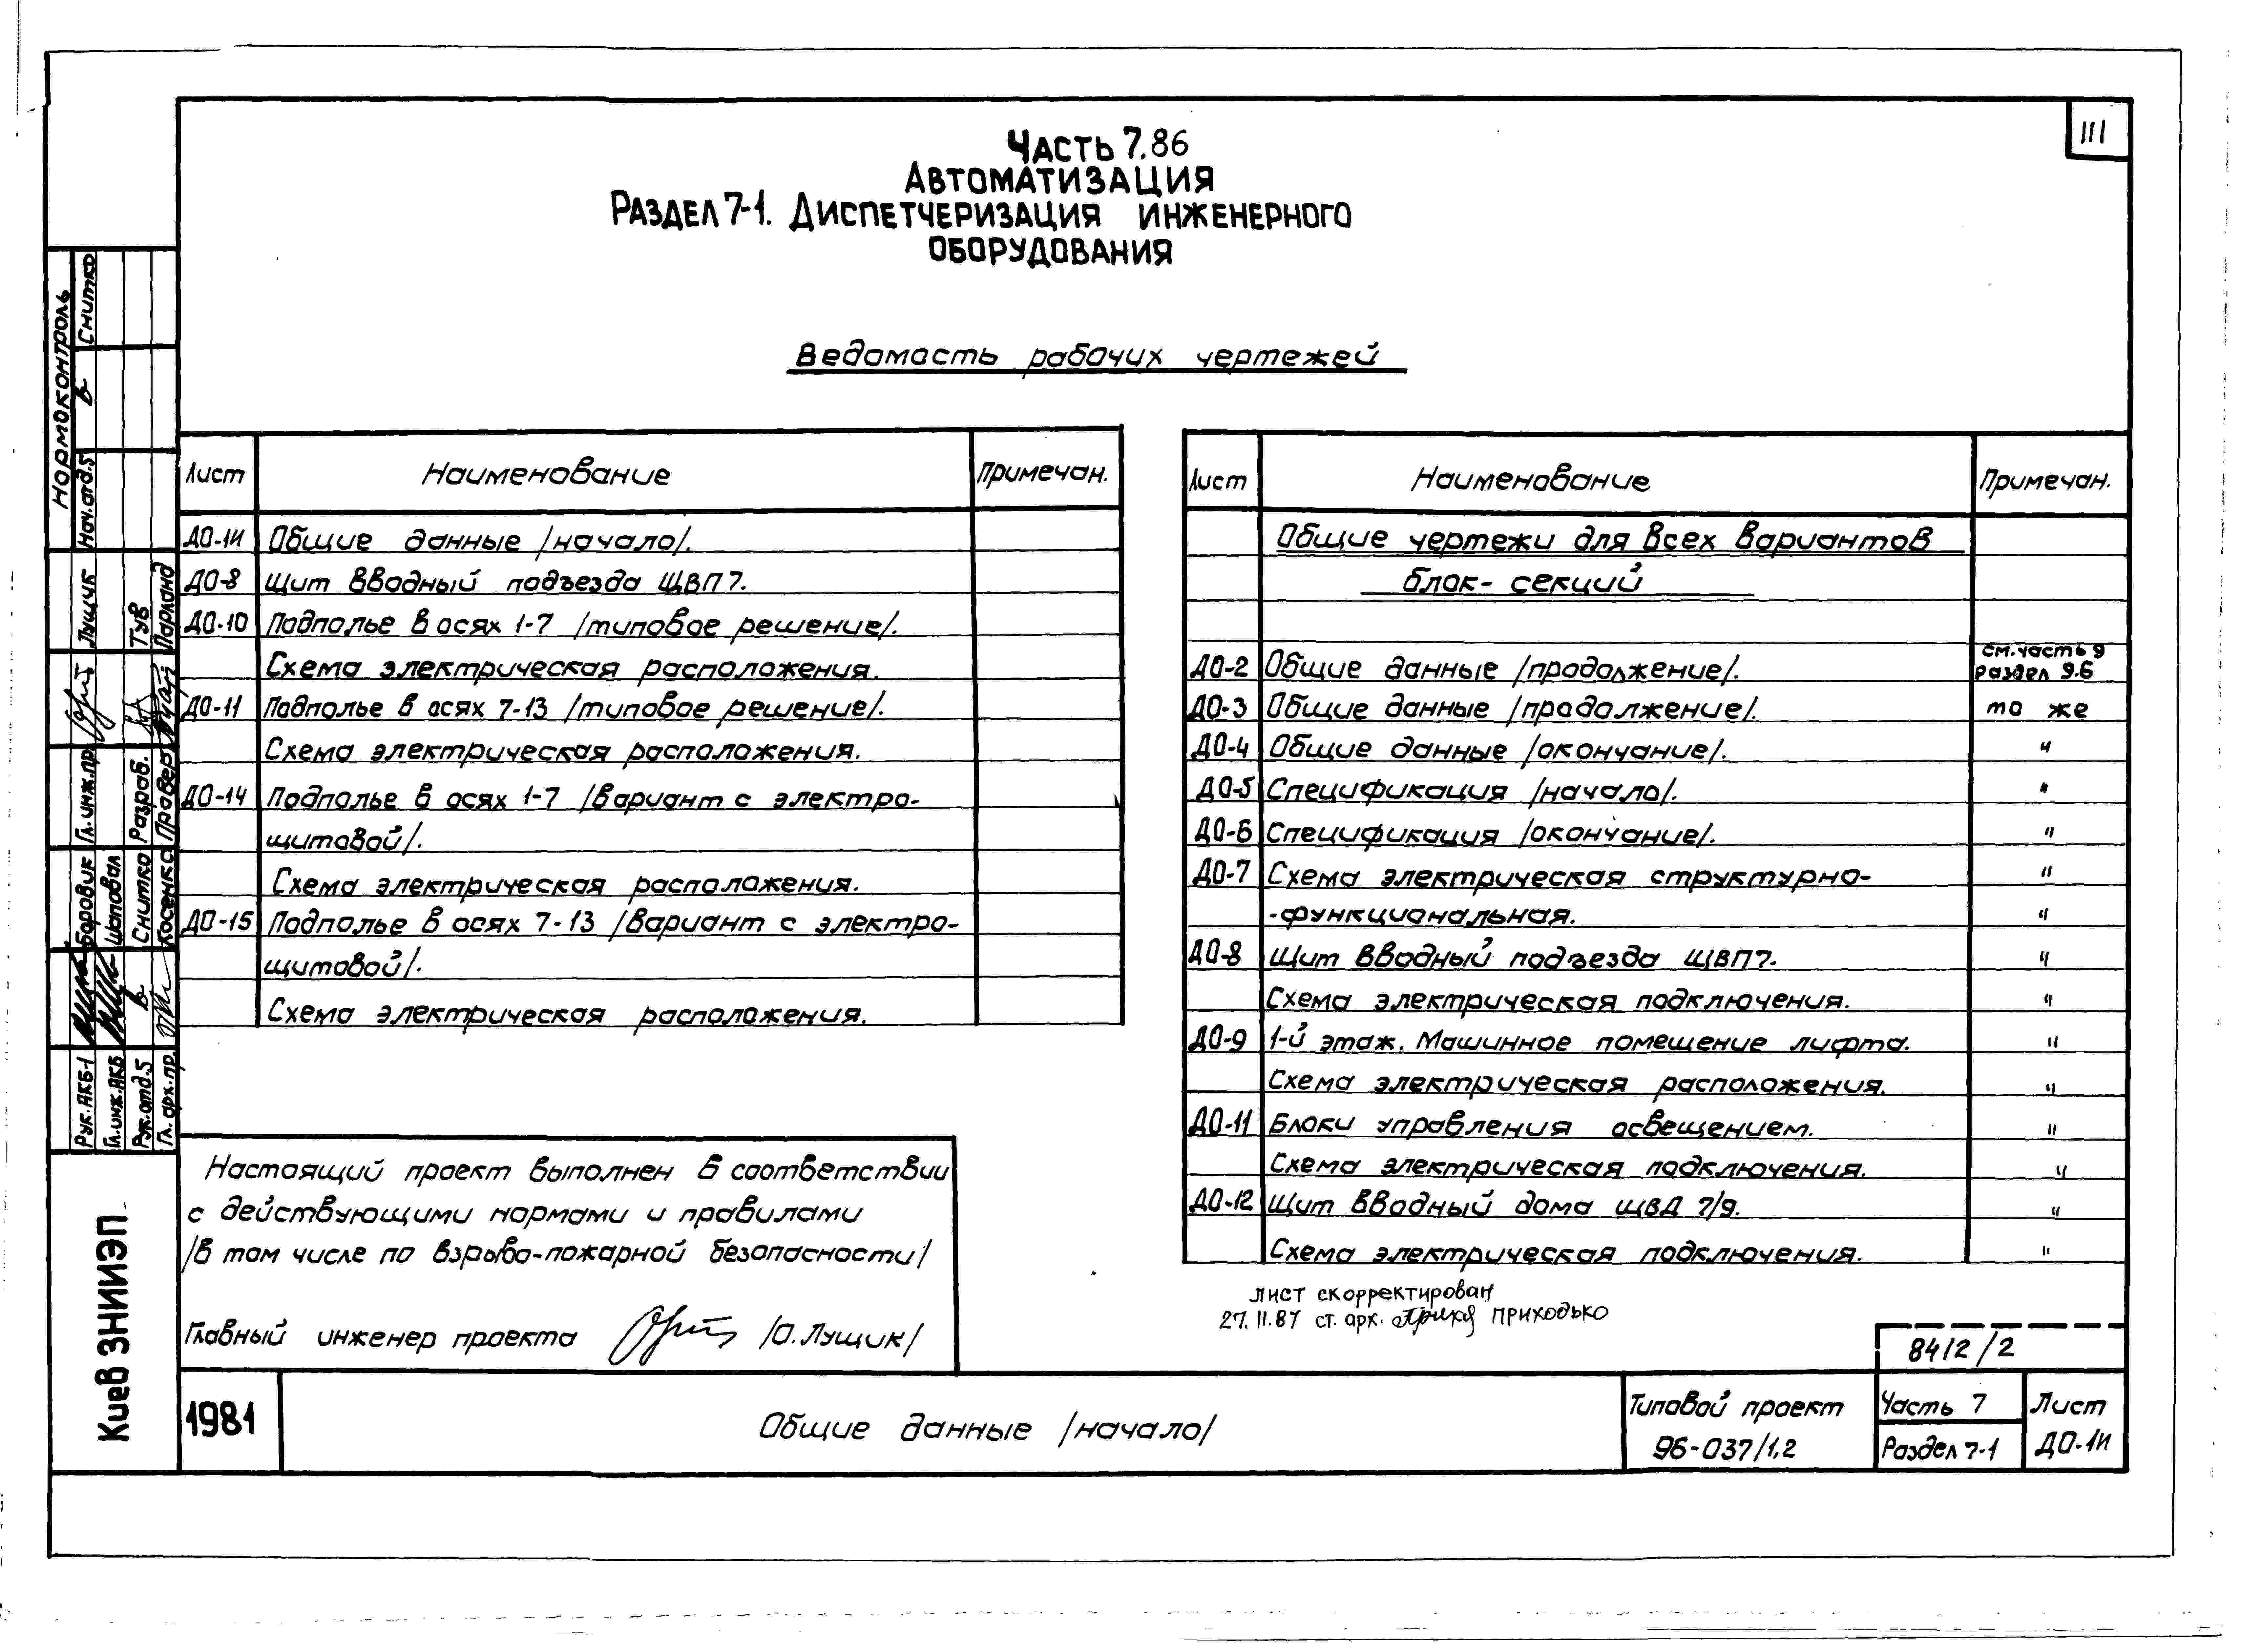 III
Часть 7.86
Автоматизация
Раздел 7-1. Диспетчеризация инженерного
оборудования
Ведомость рабочих чертежей
Лист Наименование Примечан.
ДО-1И Общие данные /начало/.
ДО-8 Щит вводный подъезда ЩВП7.
ДО-10 Подполье в осях 1-7 /типовое решение/.
Схема электрическая расположения.
ДО-11 Подполье в осях 7-13 /типовое решение/.
Схема электрическая расположения.
ДО-14 Подполье в осях 1-7 /вариант с электро-
щитовой/.
Схема электрическая расположения.
ДО-15 Подполье в осях 7-13 /вариант с электро-
щитовой/.
Схема электрическая расположения.
Лист Наименование Примечан.
Общие чертежи для всех вариантов
блок-секций
см. часть 9
ДО-2 Общие данные /продолжение/. раздел 9.6
ДО-3 Общие данные /продолжение/. то же
ДО-4 Общие данные /окончание/. "
ДО-5 Спецификация /начало/. "
ДО-6 Спецификация /окончание/. "
ДО-7 Схема электрическая структурно- "
-функциональная. "
ДО-8 Щит вводный подъезда ЩВП7. "
Схема электрическая подключения. "
ДО-9 1-й этаж. Машинное помещение лифта. "
Схема электрическая расположения. "
ДО-11 Блоки управления освещением. "
Схема электрическая подключения. "
ДО-12 Щит вводный дома ЩВД 7/9. "
Схема электрическая подключения. "
Настоящий проект выполнен в соответствии
с действующими нормами и правилами
/в том числе по взрыво-пожарной безопасности/
Главный инженер проекта /О. Лущик/
лист скорректирован
27.11.87 ст. арх. Приходько
8412/2
1981
Общие данные /начало/
Типовой проект
96-037/1,2
Часть 7
Раздел 7-1
Лист
ДО-1И
Киев ЗНИИЭП
Нормоконтроль
Нач.отд.5 Снитко
Рук.АКБ-1 Боровик Гл.инж.пр. Лущик
Гл.инж.АКБ Шаповал
Рук.отд.5 Снитко Разраб. Тув
Гл.арх.пр. Косенко Провер.